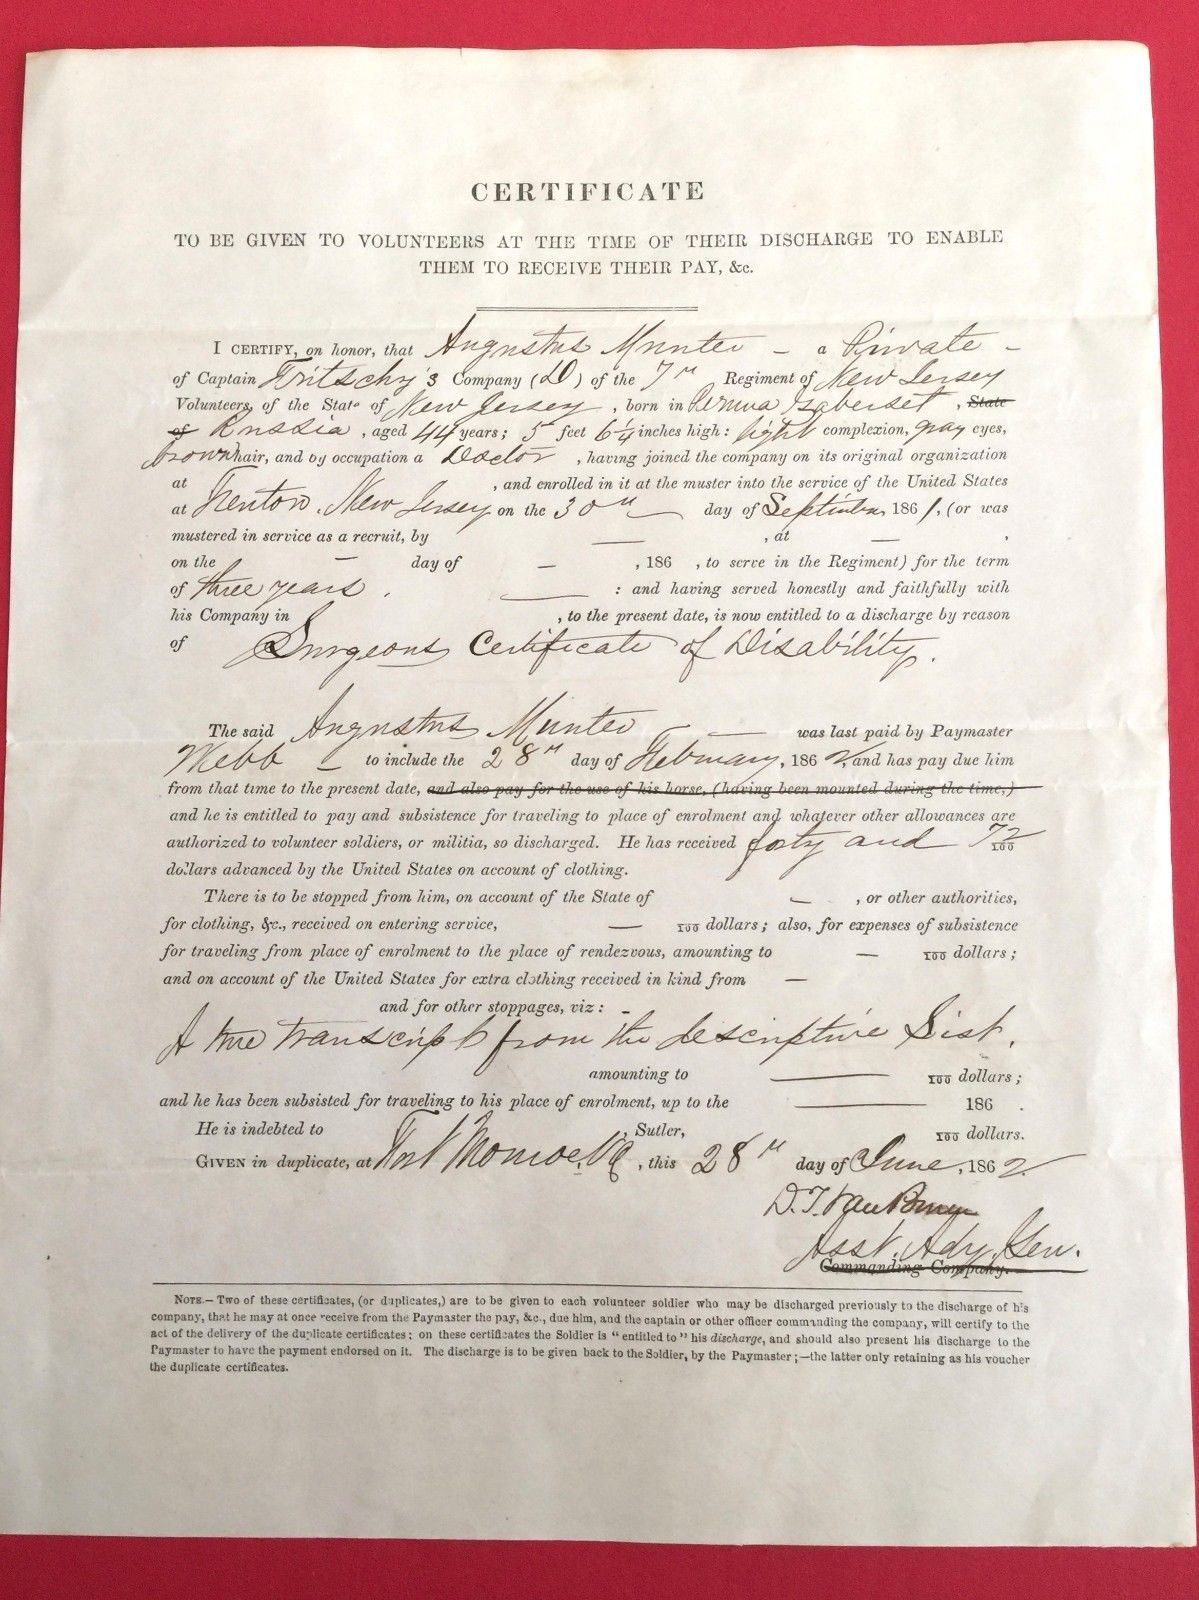 CERTIFICATE
TO BE GIVEN TO VOLUNTEERS AT THE TIME OF THEIR DISCHARGE TO ENABLE
THEM TO RECEIVE THEIR PAY, &c.
I CERTIFY, on honor, that Augustus Munter – a Private –
of Captain Fritschy's Company (D) of the 7th Regiment of New Jersey
Volunteers, of the State of New Jersey, born in , State
of Russia, aged 44 years; 5 feet 6¼ inches high: light complexion, gray eyes,
brown hair, and by occupation a Doctor, having joined the company on its original organization
at , and enrolled in it at the muster into the service of the United States
at Trenton, New Jersey on the 30th day of September 1861, (or was
mustered in service as a recruit, by — , at — ,
on the – day of – , 186 , to serve in the Regiment) for the term
of three years . — : and having served honestly and faithfully with
his Company in , to the present date, is now entitled to a discharge by reason
of Surgeons Certificate of Disability.
The said Augustus Munter — was last paid by Paymaster
Webb – to include the 28th day of February, 1862, and has pay due him
from that time to the present date, and also pay for the use of his horse, (having been mounted during the time,)
and he is entitled to pay and subsistence for traveling to place of enrolment and whatever other allowances are
authorized to volunteer soldiers, or militia, so discharged. He has received forty and 72/100
dollars advanced by the United States on account of clothing.
There is to be stopped from him, on account of the State of – , or other authorities,
for clothing, &c., received on entering service, — /100 dollars; also, for expenses of subsistence
for traveling from place of enrolment to the place of rendezvous, amounting to — /100 dollars;
and on account of the United States for extra clothing received in kind from –
and for other stoppages, viz: –
A true transcript from the descriptive List.
amounting to — /100 dollars;
and he has been subsisted for traveling to his place of enrolment, up to the — 186 .
He is indebted to , Sutler, /100 dollars.
GIVEN in duplicate, at Fort Monroe, Va, this 28th day of June, 1862
D.T. Van Buren
Asst. Adj. Gen.
Commanding Company.
NOTE.—Two of these certificates, (or duplicates,) are to be given to each volunteer soldier who may be discharged previously to the discharge of his
company, that he may at once receive from the Paymaster the pay, &c., due him, and the captain or other officer commanding the company, will certify to the
act of the delivery of the duplicate certificates; on these certificates the Soldier is "entitled to" his discharge, and should also present his discharge to the
Paymaster to have the payment endorsed on it. The discharge is to be given back to the Soldier, by the Paymaster;—the latter only retaining as his voucher
the duplicate certificates.